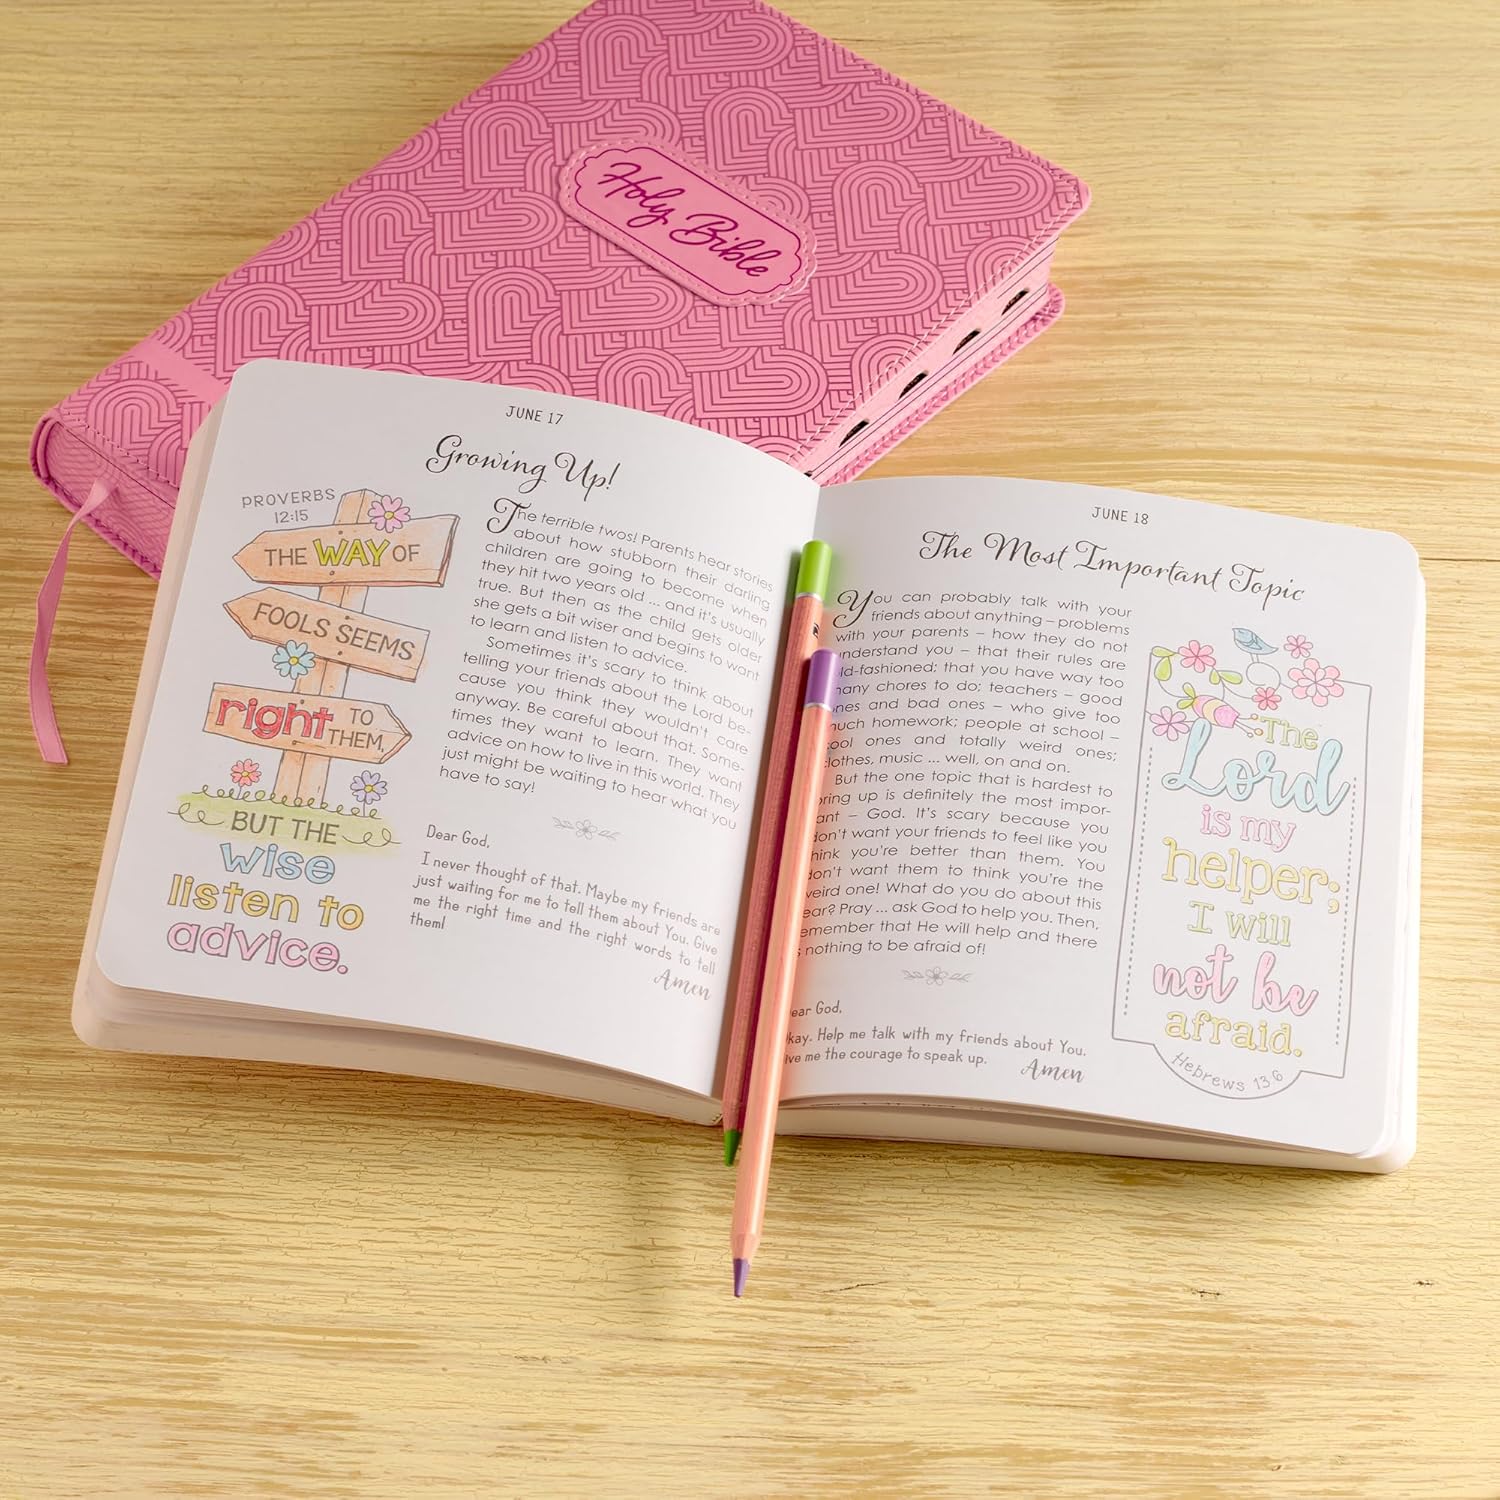 Holy Bible
JUNE 17
Growing Up!
PROVERBS
12:15
THE WAY OF
FOOLS SEEMS
right TO
THEM,
BUT THE
wise
listen to
advice.
The terrible twos! Parents hear stories
about how stubborn their darling
children are going to become when
they hit two years old ... and it's usually
true. But then as the child gets older
she gets a bit wiser and begins to want
to learn and listen to advice.
Sometimes it's scary to think about
telling your friends about the Lord be-
cause you think they wouldn't care
anyway. Be careful about that. Some-
times they want to learn. They want
advice on how to live in this world. They
just might be waiting to hear what you
have to say!
Dear God,
I never thought of that. Maybe my friends are
just waiting for me to tell them about You. Give
me the right time and the right words to tell
them!
Amen
JUNE 18
The Most Important Topic
You can probably talk with your
friends about anything – problems
with your parents – how they do not
understand you – that their rules are
ld-fashioned; that you have way too
many chores to do; teachers – good
nes and bad ones – who give too
uch homework; people at school –
ool ones and totally weird ones;
lothes, music ... well, on and on.
But the one topic that is hardest to
bring up is definitely the most impor-
ant – God. It's scary because you
don't want your friends to feel like you
hink you're better than them. You
don't want them to think you're the
weird one! What do you do about this
ear? Pray ... ask God to help you. Then,
emember that He will help and there
s nothing to be afraid of!
ear God,
kay. Help me talk with my friends about You.
ive me the courage to speak up.
Amen
The
Lord
is my
helper;
I will
not be
afraid.
Hebrews 13:6